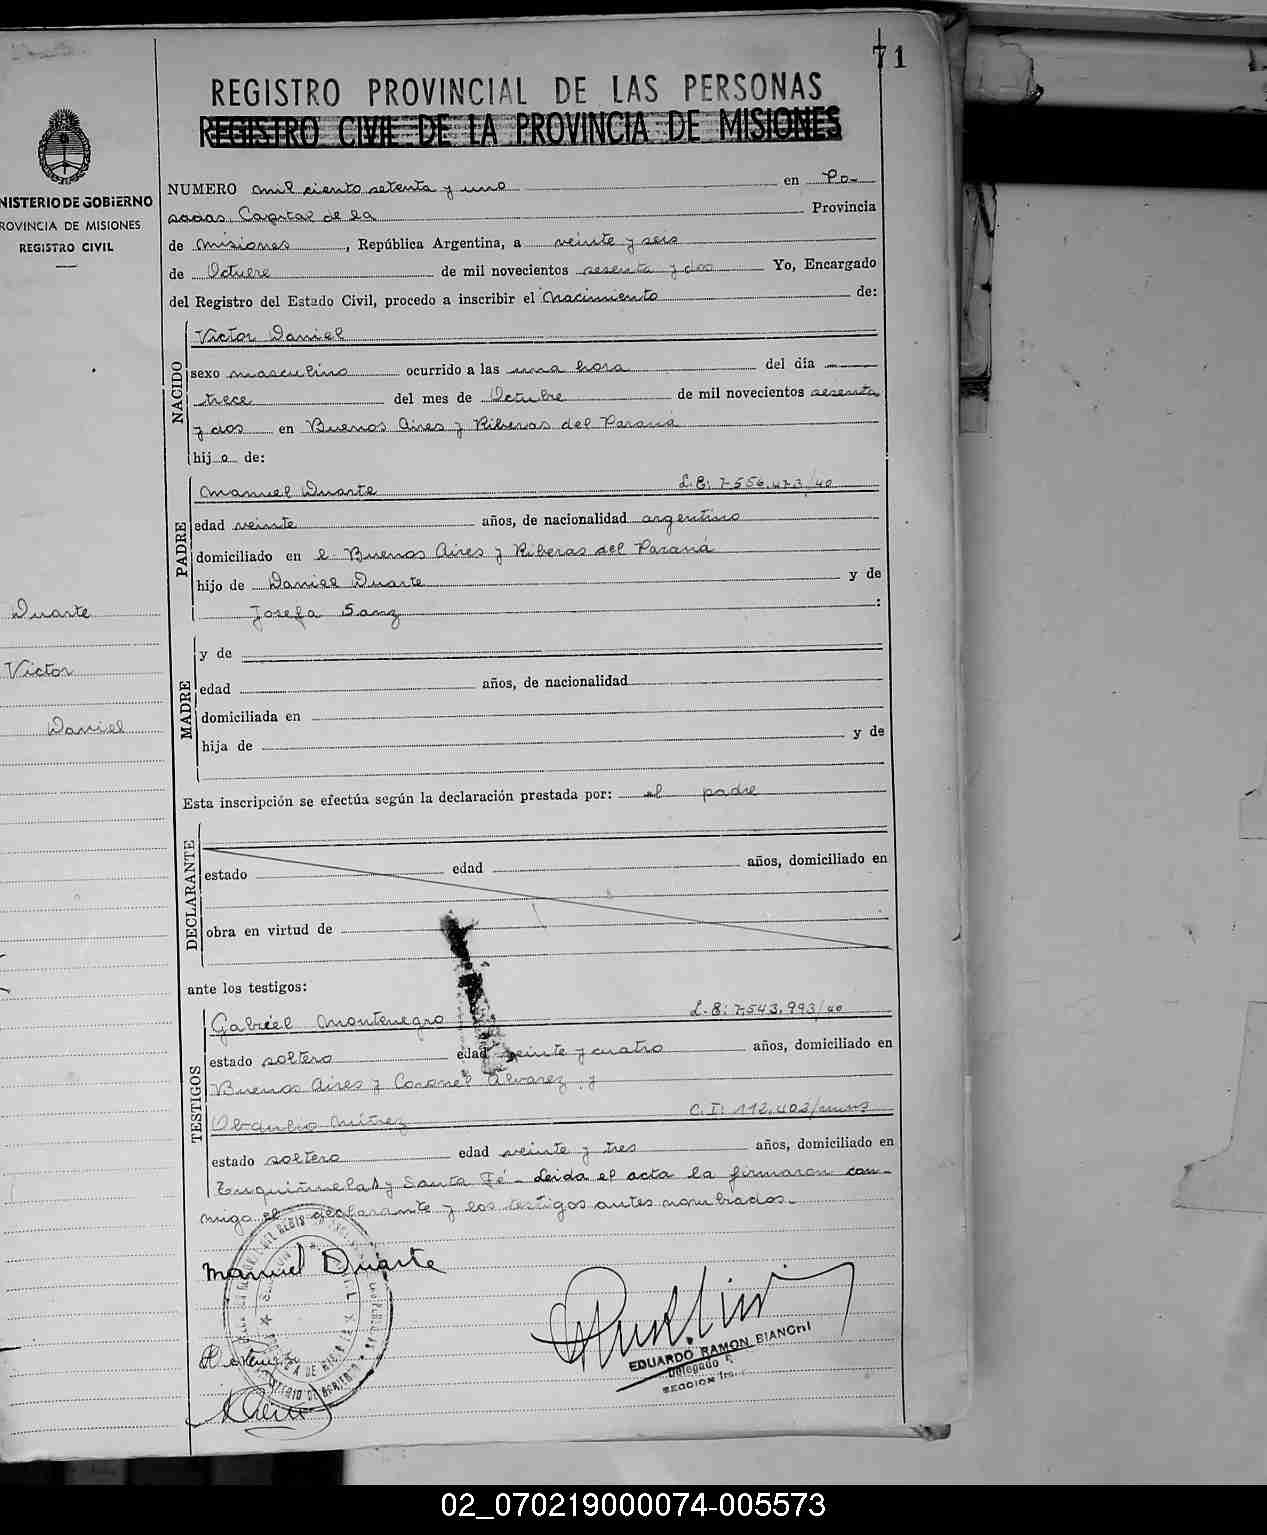 71
REGISTRO PROVINCIAL DE LAS PERSONAS
REGISTRO CIVIL DE LA PROVINCIA DE MISIONES
MINISTERIO DE GOBIERNO
PROVINCIA DE MISIONES
REGISTRO CIVIL
NUMERO mil ciento setenta y uno en Po-
sadas Capital de la Provincia
de misiones, República Argentina, a veinte y seis
de Octubre de mil novecientos sesenta y dos Yo, Encargado
del Registro del Estado Civil, procedo a inscribir el Nacimiento de:
NACIDO
Victor Daniel
sexo masculino ocurrido a las una hora del día
trece del mes de Octubre de mil novecientos sesenta
y dos en Buenos Aires y Riberas del Paraná
hijo de:
PADRE
Manuel Duarte L.E: 7.556.473/40
edad veinte años, de nacionalidad argentino
domiciliado en Buenos Aires y Riberas del Paraná
hijo de Daniel Duarte y de
Josefa Sanz :
Duarte
Victor
Daniel
MADRE
y de
edad años, de nacionalidad
domiciliada en
hija de y de
Esta inscripción se efectúa según la declaración prestada por: el padre
DECLARANTE
estado edad años, domiciliado en
obra en virtud de
ante los testigos:
TESTIGOS
Gabriel Montenegro L.E: 7.543.993/40
estado soltero edad veinte y cuatro años, domiciliado en
Buenos Aires y Coronel Alvarez y
C.I: 112.403
estado soltero edad veinte y tres años, domiciliado en
y Santa Fé - Leida el acta la firmaron con-
migo el declarante y los testigos antes nombrados.-
Manuel Duarte
EDUARDO RAMON BIANCHI
Delegado
SECCION 1ra.
02_070219000074-005573